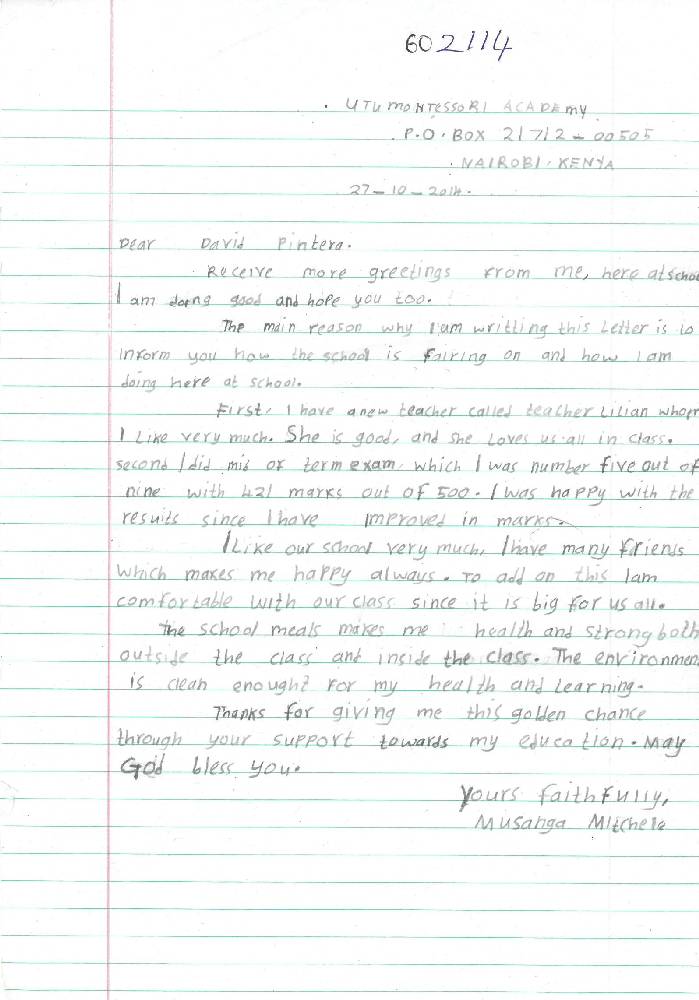 602114
. UTU MONTESSORI ACADEMY
. P.O. BOX 21712 - 00505
. NAIROBI. KENYA
27-10-2014.
Dear David Pintera.
Receive more greetings from me, here at schoo
I am doing good and hope you too.
The main reason why I am writting this Letter is to
inform you how the school is fairing on and how I am
doing here at school.
First, I have a new teacher called teacher Lilian whom
I Like very much. She is good, and she Loves us all in class.
second I did mid of term exam, which I was number five out of
nine with 421 marks out of 500. I was happy with the
results since I have improved in marks.
I Like our school very much, I have many friends
which makes me happy always. To add on this I am
comfortable with our class since it is big for us all.
The school meals makes me health and strong both
outside the class and inside the class. The environmen
is clean enought for my health and learning.
Thanks for giving me this golden chance
through your support towards my education. May
God bless you.
Yours faithfully,
Musanga Mitchele